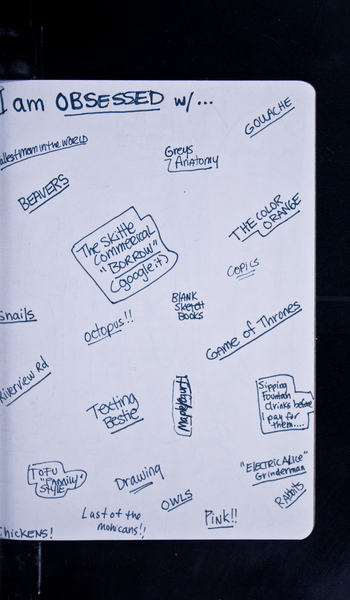 I am OBSESSED w/...
GOUACHE
allest mom in the world
Greys
Anatomy
BEAVERS
THE COLOR
ORANGE
The Skittle
Commercial
"BORROW"
(google it)
COPICS
BLANK
Sketch
BOOKS
Snails
octopus!!
Game of Thrones
Riverview Rd
Texting
Bestie
Sipping
Fountain
drinks before
I pay for
them....
TOFU
"Family"
STYLE
Drawing
"ELECTRIC ALICE"
Grinderman
OWLS
RABBITS
Last of the
mohicans!!
PINK!!
Chickens!